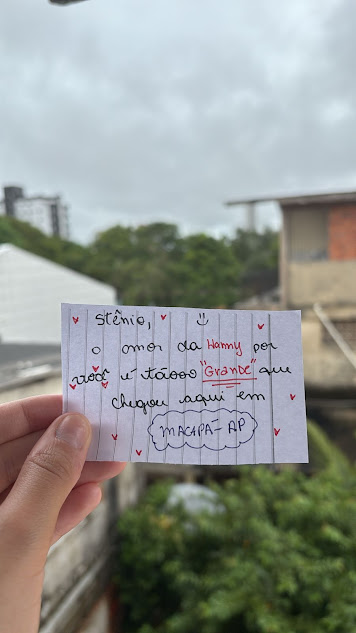 Stênio, :)
o amor da Hanny por
você é tãooo "Grande" que
chegou aqui em
MACAPÁ-AP